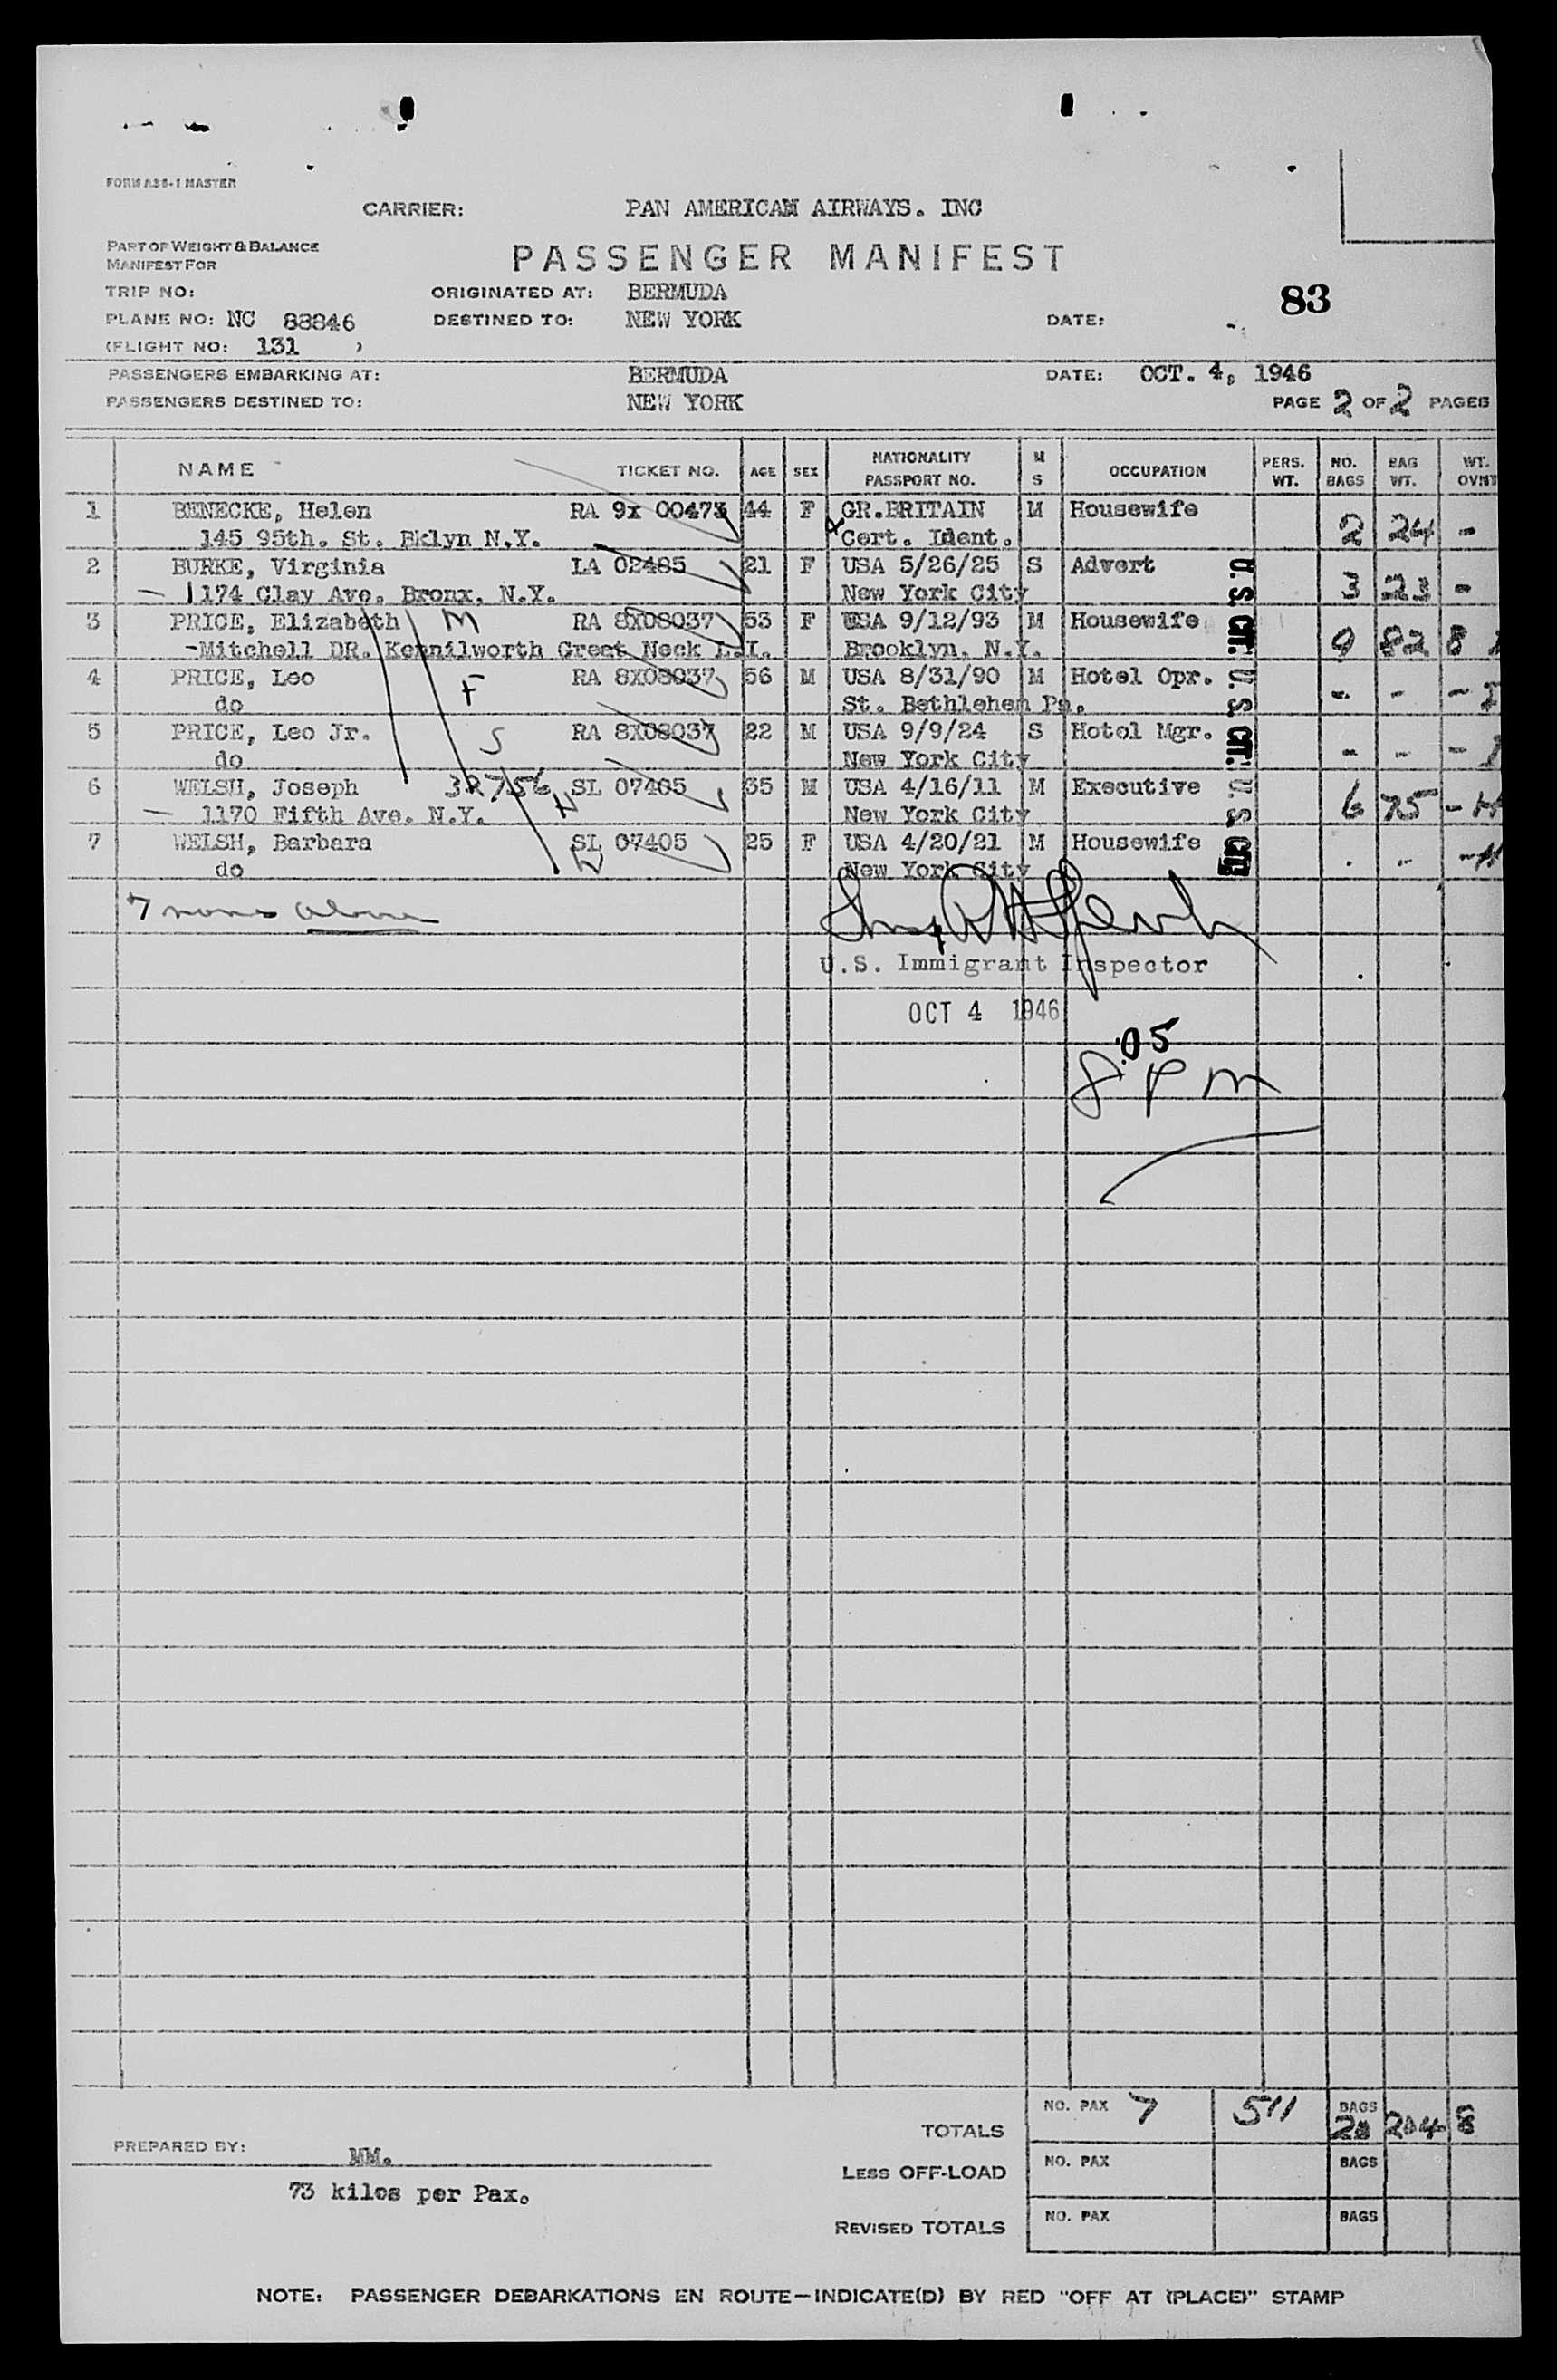 FORM A86-1 MASTER
CARRIER: PAN AMERICAN AIRWAYS. INC
PART OF WEIGHT & BALANCE
MANIFEST FOR
PASSENGER MANIFEST
TRIP NO: ORIGINATED AT: BERMUDA
83
PLANE NO: NC 88846 DESTINED TO: NEW YORK DATE:
(FLIGHT NO: 131 )
PASSENGERS EMBARKING AT: BERMUDA DATE: OCT. 4, 1946
PASSENGERS DESTINED TO: NEW YORK PAGE 2 OF 2 PAGES
NAME TICKET NO. AGE SEX NATIONALITY PASSPORT NO. M S OCCUPATION PERS. WT. NO. BAGS BAG WT. WT. OVNT
1 BENECKE, Helen RA 9x 00473 44 F GR.BRITAIN M Housewife 2 24 -
145 95th. St. Bklyn N.Y. x Cert. Ident.
2 BURKE, Virginia LA 02485 21 F USA 5/26/25 S Advert U.S. CIT. 3 23 -
1174 Clay Ave. Bronx, N.Y. New York City
3 PRICE, Elizabeth M RA 8X08037 53 F USA 9/12/93 M Housewife 9 82 8
-Mitchell DR. Kennilworth Great Neck L.I. Brooklyn, N.Y.
4 PRICE, Leo F RA 8X08037 56 M USA 8/31/90 M Hotel Opr. U.S. CIT. - - -
do St. Bethlehem Pa.
5 PRICE, Leo Jr. S RA 8X08037 22 M USA 9/9/24 S Hotel Mgr. - - -
do New York City
6 WELSH, Joseph 32756 H SL 07405 35 M USA 4/16/11 M Executive U.S. CIT. 6 75 - H
1170 Fifth Ave. N.Y. New York City
7 WELSH, Barbara W SL 07405 25 F USA 4/20/21 M Housewife . - - H
do New York City
7 names above
U.S. Immigrant Inspector
OCT 4 1946
8:05 PM
TOTALS NO. PAX 7 511 BAGS 20 204 8
PREPARED BY: MM.
LESS OFF-LOAD NO. PAX BAGS
73 kilos per Pax.
REVISED TOTALS NO. PAX BAGS
NOTE: PASSENGER DEBARKATIONS EN ROUTE—INDICATE(D) BY RED "OFF AT (PLACE)" STAMP